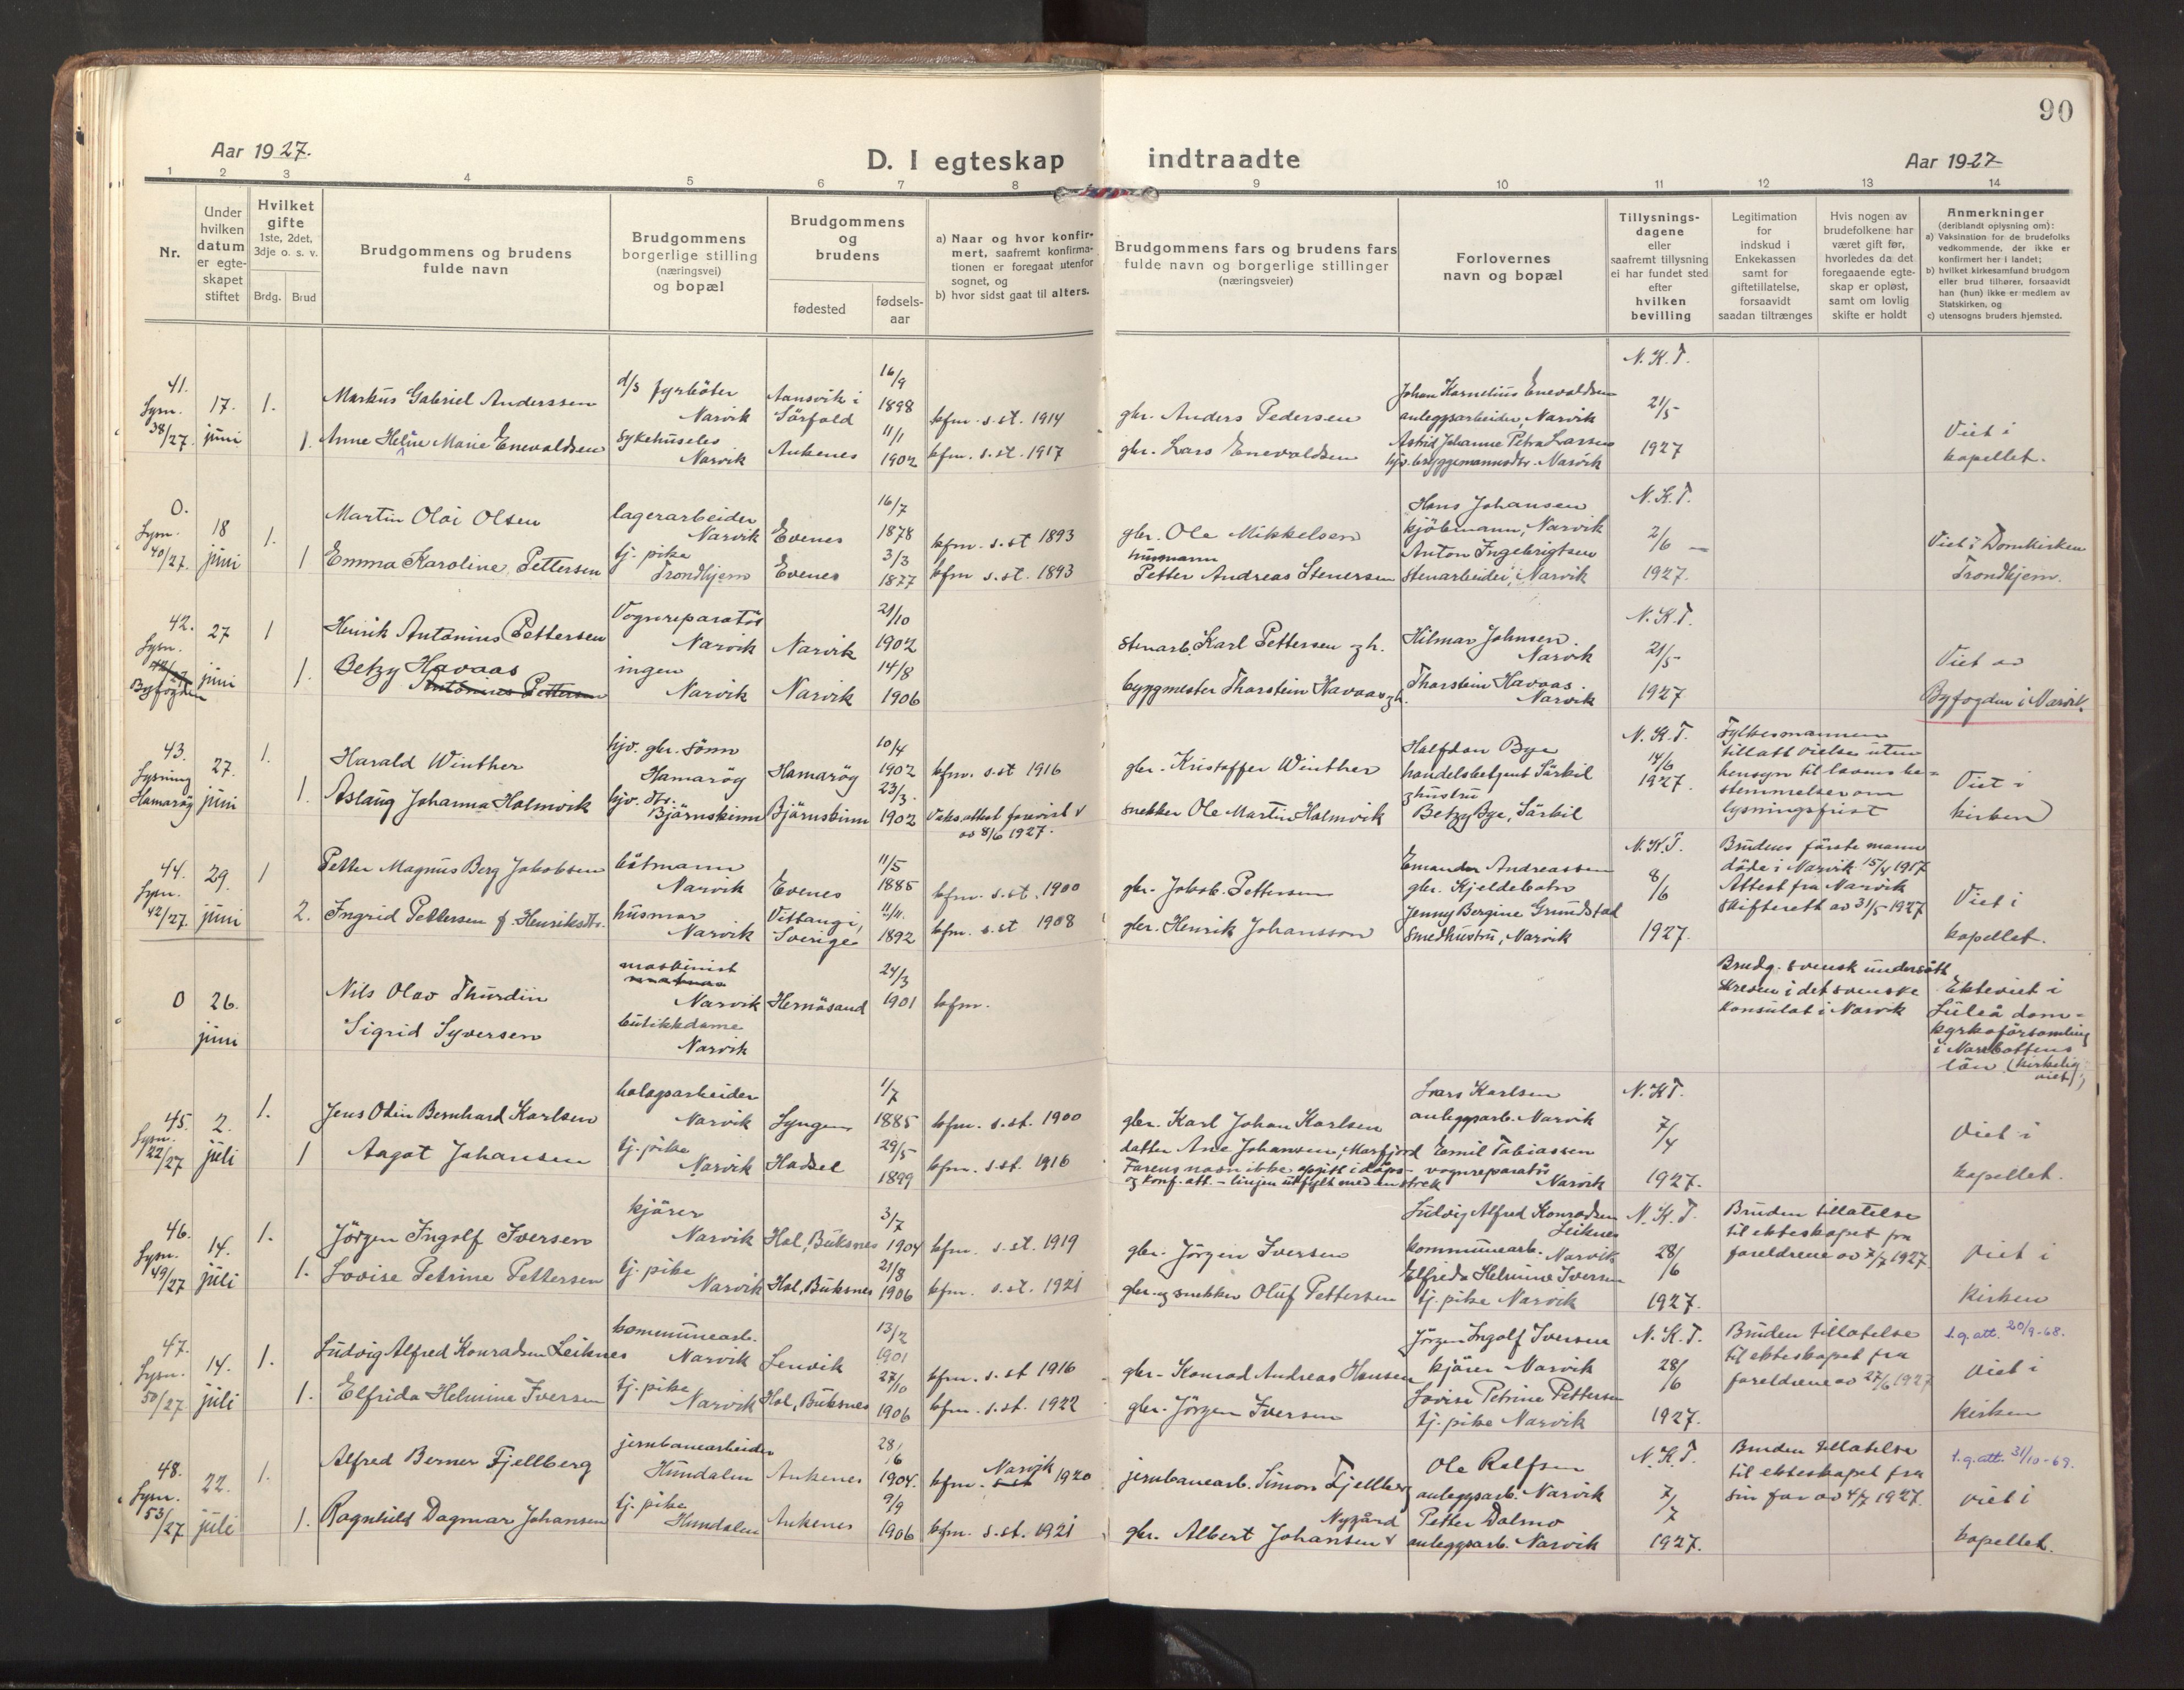 90
Aar 1927.
D. I egteskap indtraadte
Aar 1927
1 2 3 4 5 6 7 8 9 10 11 12 13 14
Nr.
Under
hvilken
datum
er egte-
skapet
stiftet
Hvilket
gifte
1ste, 2det,
3dje o. s. v.
Brdg. Brud
Brudgommens og brudens
fulde navn
Brudgommens
borgerlige stilling
(næringsvei)
og bopæl
Brudgommens
og
brudens
fødested
fødsels-
aar
a) Naar og hvor konfir-
mert, saafremt konfirma-
tionen er foregaat utenfor
sognet, og
b) hvor sidst gaat til alters.
Brudgommens fars og brudens fars
fulde navn og borgerlige stillinger
(næringsveier)
Forlovernes
navn og bopæl
Tillysnings-
dagene
eller
saafremt tillysning
ei har fundet sted
efter
hvilken
bevilling
Legitimation
for
indskud i
Enkekassen
samt for
giftetillatelse,
forsaavidt
saadan tiltrænges
Hvis nogen av
brudefolkene har
været gift før,
hvorledes da det
foregaaende egte-
skap er opløst,
samt om lovlig
skifte er holdt
Anmerkninger
(deriblandt oplysning om):
a) Vaksination for de brudefolks
vedkommende, der ikke er
konfirmert her i landet;
b) hvilket kirkesamfund brudgom
eller brud tilhører, forsaavidt
han (hun) ikke er medlem av
Statskirken, og
c) utensogns bruders hjemsted.
41.
Lysn.
38/27.
17.
juni
1.
Markus Gabriel Anderssen
d/s fyrböter
Narvik
Aansvik i
Sörfold
16/9
1898
kfm. s. st. 1914
gbr. Anders Pedersen
Johan Kornelius Enevoldsen
anleggsarbeider, Narvik
N. K. T.
21/5
1927
1.
Anne Heline Marie Enevoldsen
sykehuseles
Narvik
Ankenes
11/1
1902
kfm. s. st. 1917
gbr. Lars Enevoldsen
Astrid Johanne Petra Larsen
hjv. bryggemannsdtr. Narvik
Viet i
kapellet.
0.
Lysn.
40/27.
18
juni
1.
Martin Olai Olsen
lagerarbeider
Narvik
Evenes
16/7
1878
kfm. s. st 1893
gbr. Ole Mikkelsen
Hans Johansen
kjöbmann, Narvik
N. K. T.
2/6
1927.
1
Emma Karoline Pettersen
tj. pike
Trondhjem
Evenes
3/3
1877
kfm s. st. 1893
husmann
Petter Andreas Stenersen
Anton Ingebrigtsen
stenarbeider, Narvik
Viet i Domkirken
Trondhjem.
42.
Lysn.
Byfogden
27
juni
1
Henrik Antonius Pettersen
Vognreparatör
Narvik
Narvik
21/10
1902
stenarb. Karl Pettersen g h.
Hilmar Johnsen.
Narvik
N. K. T.
21/5
1927
1.
Betzy Havaas
Antonius Pettersen
ingen
Narvik
Narvik
14/8
1906
byggmester Tharstein Havaas g h.
Tharstein Havaas
Narvik
Viet av
Byfogden i Narvik.
43.
Lysning
Hamaröy
27.
juni
1.
Harald Winther
hjv. gbr. sönn
Hamaröy
Hamaröy
10/4
1902
kfm. s. st 1916
gbr. Kristoffer Winther
Halfdan Bye
handelsbetjent Särkil
N. K. T.
14/6
1927.
Fylkesmannen
tillatt vielse uten
hensyn til lovens be-
stemmelser om
lysningsfrist
1.
Aslaug Johanna Holmvik
hjv. dtr.
Björnskinn
Björnskinn
23/3
1902
Vaks. attest forevist
av 8/6 1927.
snekker Ole Martin Holmvik
g hustru
Betzy Bye, Särkil
Viet i
kirken
44.
Lysn.
42/27.
29.
juni
1
Petter Magnus Berg Jakobsen
båtmann
Narvik
Evenes
11/5
1885
kfm. s. st. 1900
gbr. Jakob Pettersen
Emander Andreassen
gbr. Kjeldebotn
N. K. T.
8/6
1927.
Brudens förste mann
döde i Narvik 15/4 1917
Attest fra Narvik
skifterett av 31/5 1927
2.
Ingrid Pettersen f. Henriksdtr.
husmor
Narvik
Vittangi,
Sverige
11/11.
1892
kfm. s. st 1908
gbr. Henrik Johansson
Jenny Bergine Grundstad
smedhustru, Narvik
Viet i
kapellet.
0
26.
juni
Nils Olav Thurdin
maskinist
Narvik
Hernösand
24/3
1901
kfm.
Sigrid Syversen
butikkdame
Narvik
Brudg. svensk undersått
skreven i det svenske
konsulat i Narvik
Ekteviet i
Luleå dom-
kyrkoförsamling
i Norrbottens
län (kirkelig
viet)
45.
Lysn.
22/27
2.
juli
1.
Jens Odin Bernhard Karlsen
bolagsarbeider
Narvik
Lyngen
1/7
1885
kfm. s. st. 1900
gbr. Karl Johan Karlsen
Lars Karlsen
anleggsarb. Narvik
N. K T.
7/4
1927.
1
Aagot Johansen
tj. pike
Narvik
Hadsel
29/5
1899
kfm. s. st. 1916
datter Ane Johansen, Marfjord
Farens navn ikke opgitt i dåps-
og konf. att. - linjen utfylt med en strek
Emil Tobiassen
vognreparatör
Narvik
Viet i
kapellet.
46.
Lysn.
49/27
14.
juli
1.
Jörgen Ingolf Iversen
kjörer
Narvik
Hol, Buksnes
3/7
1904
kfm. s. st. 1919
gbr. Jörgen Iversen
Ludvig Alfred Konradsen
Leiknes
kommunearb. Narvik
N. K. T.
28/6
1927.
Bruden tillatelse
til ekteskapet fra
foreldrene av 7/7 1927
1.
Lovise Petrine Pettersen
tj. pike
Narvik
Hol, Buksnes
21/8
1906
kfm. s. st. 1921
gbr. og snekker Oluf Pettersen
Elfrida Helmine Iversen
tj. pike Narvik
Viet i
Kirken
47.
Lysn.
50/27
14.
juli
1.
Ludvig Alfred Konradsen Leiknes
kommunearb.
Narvik
Lenvik
13/2
1901
kfm. s. st 1916
gbr. Konrad Andreas Hansen
Jörgen Ingolf Iversen
kjörer Narvik
N. K. T.
28/6
1927.
Bruden tillatelse
til ekteskapet fra
foreldrene av 27/6 1927
l.g. att. 20/9-68.
1.
Elfrida Helmine Iversen
tj. pike
Narvik
Hol, Buksnes
27/10
1906
kfm. s. st. 1922
gbr. Jörgen Iversen
Lovise Petrine Pettersen
tj. pike Narvik
Viet i
Kirken
48.
Lysn.
53/27
22.
juli
1.
Alfred Berner Fjellberg
jernbanearbeider
Hundalen
Ankenes
28/6
1904.
kfm. Narvik 1920
jernbanearb. Simon Fjellberg
Ole Rolfsen
anleggsarb. Narvik
N. K. T.
7/7
1927.
Bruden tillatelse
til ekteskapet fra
sin far av 4/7 1927.
l.g. att. 31/10-69.
1.
Ragnhild Dagmar Johansen
tj. pike
Hundalen
Ankenes
9/9
1906
kfm. s. st. 1921
Nygård
gbr. Albert Johansen
Petter Dalmo
anleggsarb. Narvik
viet i
kapellet.